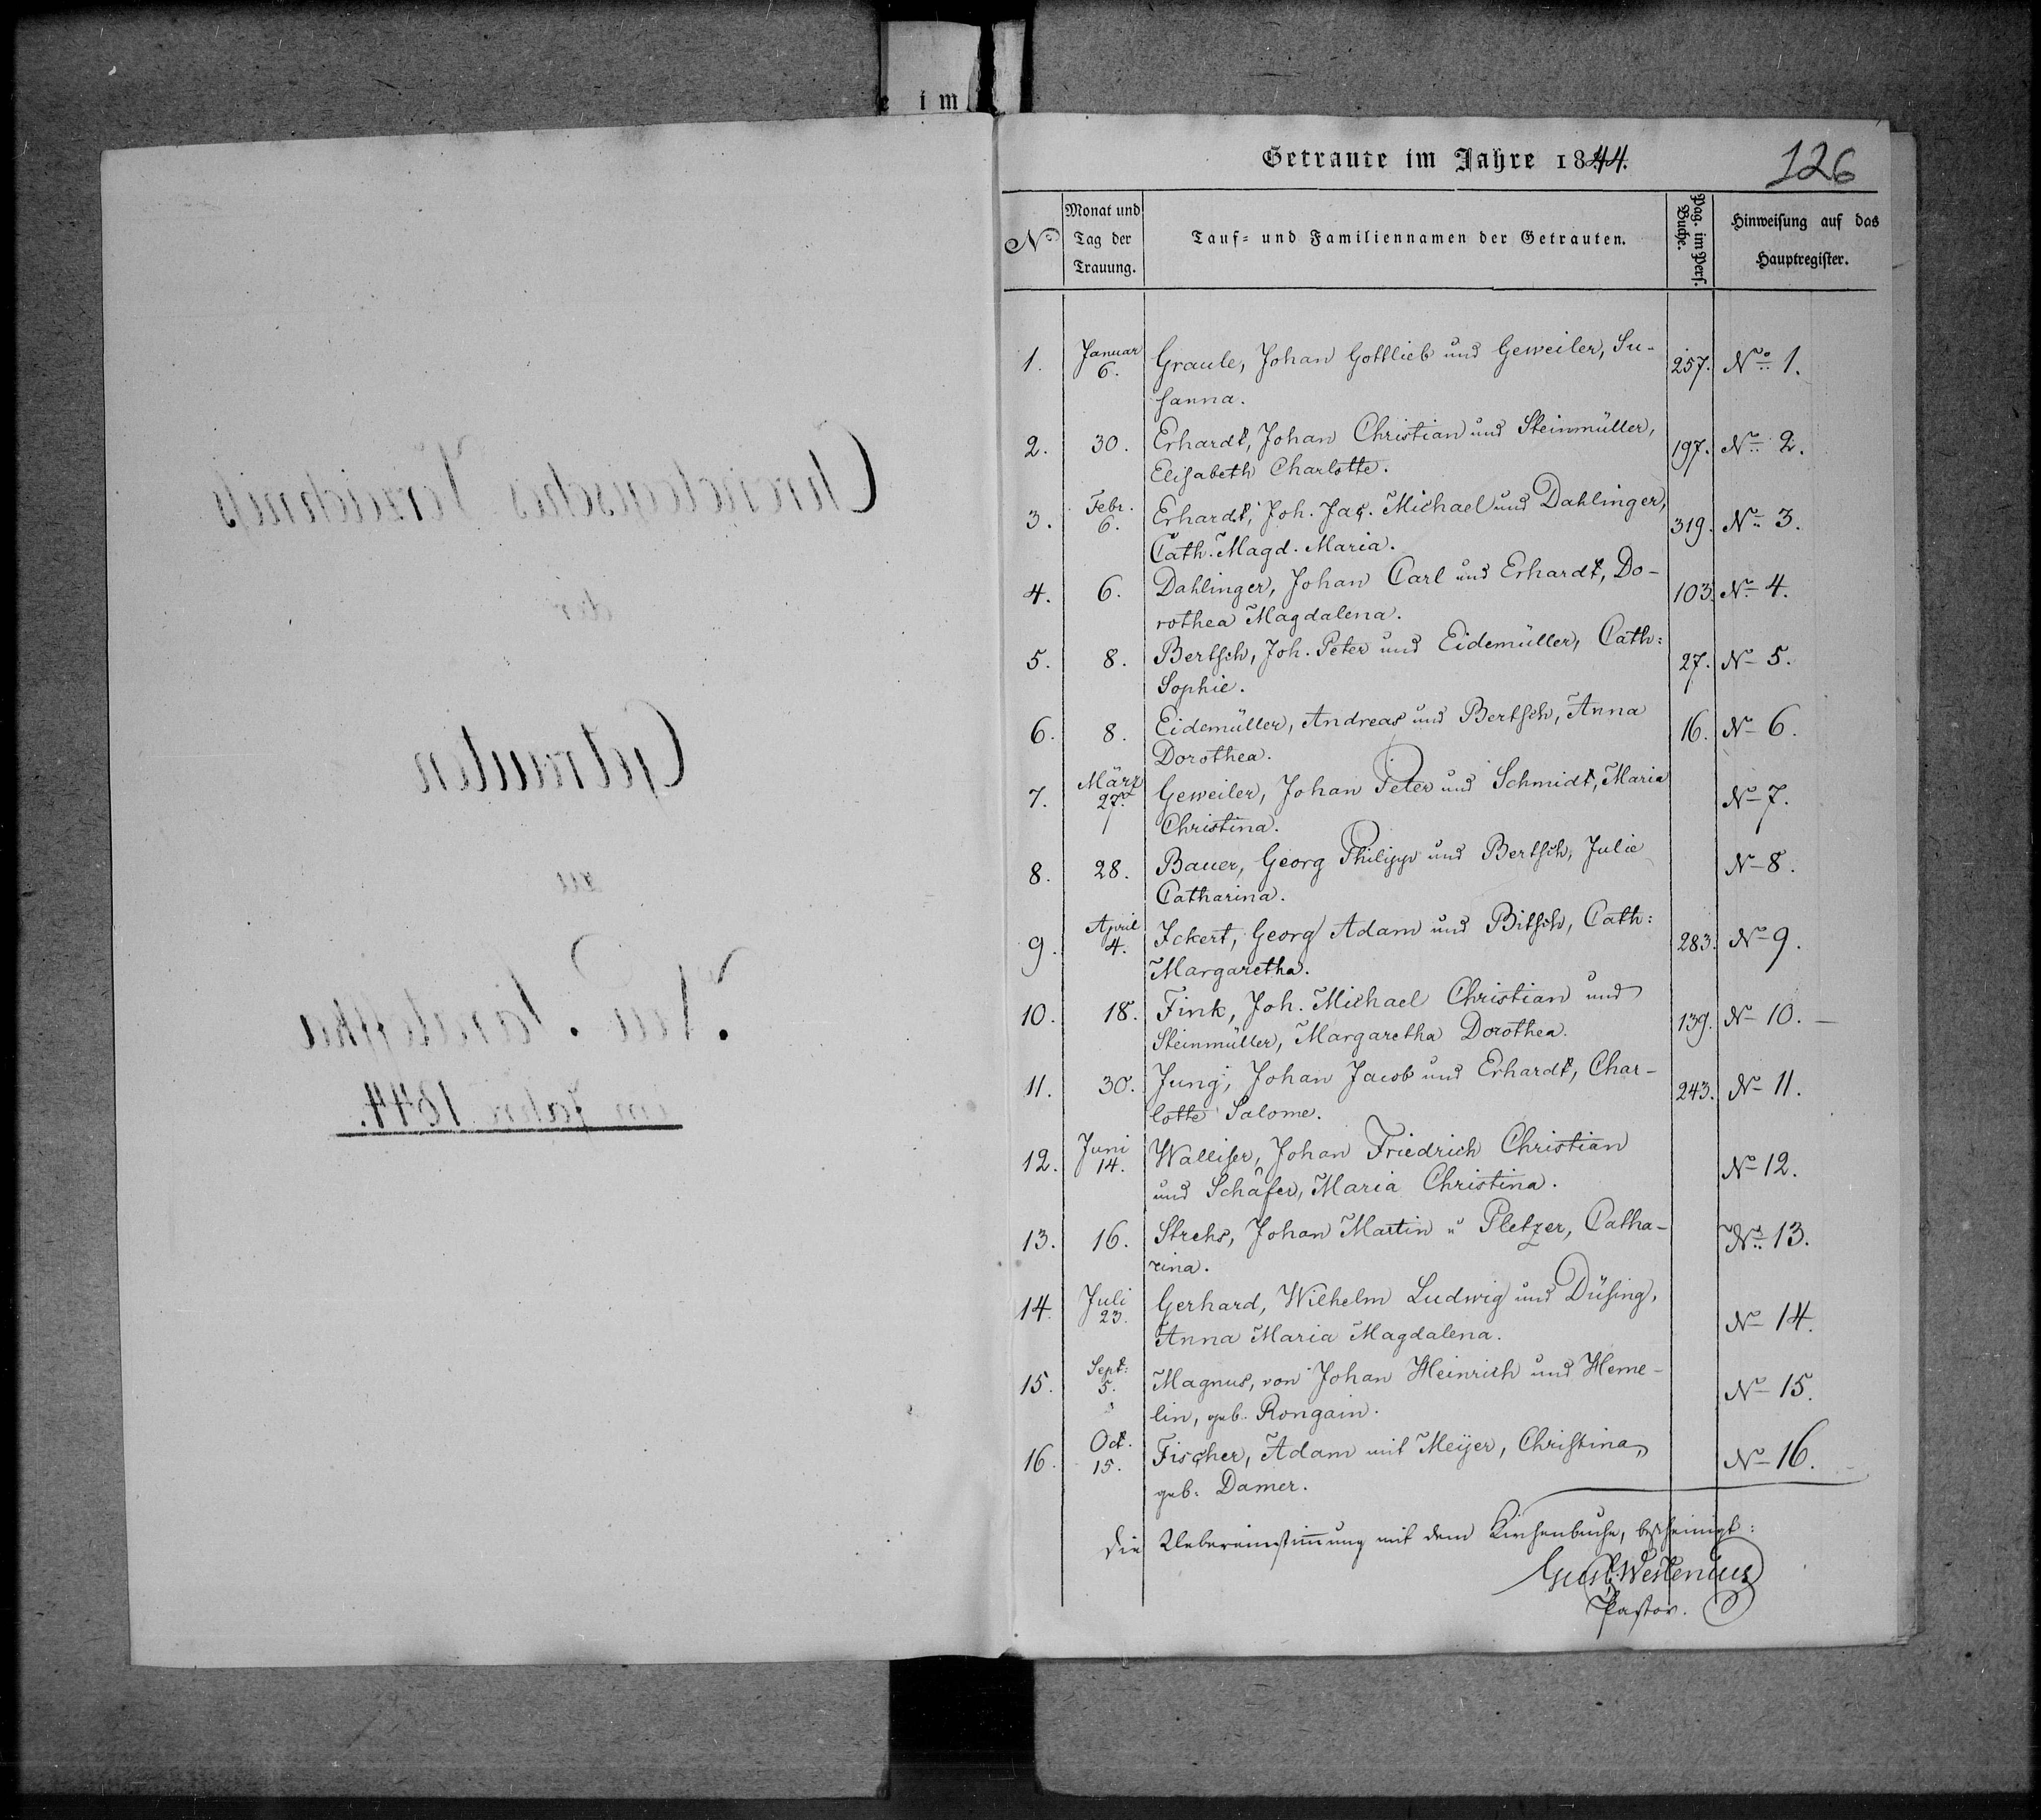 e im
Getraute im Jahre 1844.
126
No
Monat und
Tag der
Trauung.
Tauf- und Familiennamen der Getrauten.
Pag. im Pers.
Buche.
Hinweisung auf das
Hauptregister.
1. Januar 6. Graule, Johan Gottlieb und Geweiler, Su- 257. No 1.
sanna.
2. 30. Erhardt, Johan Christian und Steinmüller, 197. No 2.
Elisabeth Charlotte.
3. Febr. 6. Erhardt, Joh. Jac. Michael und Dahlinger, 319. No 3.
Cath. Magd. Maria.
4. 6. Dahlinger, Johan Carl und Erhardt, Do- 103. No 4.
rothea Magdalena.
5. 8. Bertsch, Joh. Peter und Eidemüller, Cath: 27. No 5.
Sophie.
6. 8. Eidemüller, Andreas und Bertsch, Anna 16. No 6.
Dorothea.
7. März 27. Geweiler, Johan Peter und Schmidt, Maria No 7.
Christina.
8. 28. Bauer, Georg Philipp und Bertsch, Julie No 8.
Catharina.
9. April 4. Ickert, Georg Adam und Bitsch, Cath: 283. No 9.
Margaretha.
10. 18. Fink, Joh. Michael Christian und 139. No 10.
Steinmüller, Margaretha Dorothea.
11. 30. Jung, Johan Jacob und Erhardt, Char- 243. No 11.
lotte Salome.
12. Juni 14. Walliser, Johan Friedrich Christian No 12.
und Schäfer, Maria Christina.
13. 16. Strehs, Johan Martin u Pletzer, Catha- No 13.
rina.
14. Juli 23. Gerhard, Wilhelm Ludwig und Düsing, No 14.
Anna Maria Magdalena.
15. Sept: 5. Magnus, von Johan Heinrich und Heme- No 15.
lin, geb. Rongain.
16. Oct. 15. Fischer, Adam mit Meijer, Christina, No 16.
geb. Damer.
Die Uebereinstimmung mit dem Kirchenbuche, bescheinigt:
Westenius
Pastor.
Chronologisches Verzeichniß
der
Getrauten
zu
Neu
im Jahre 1844.